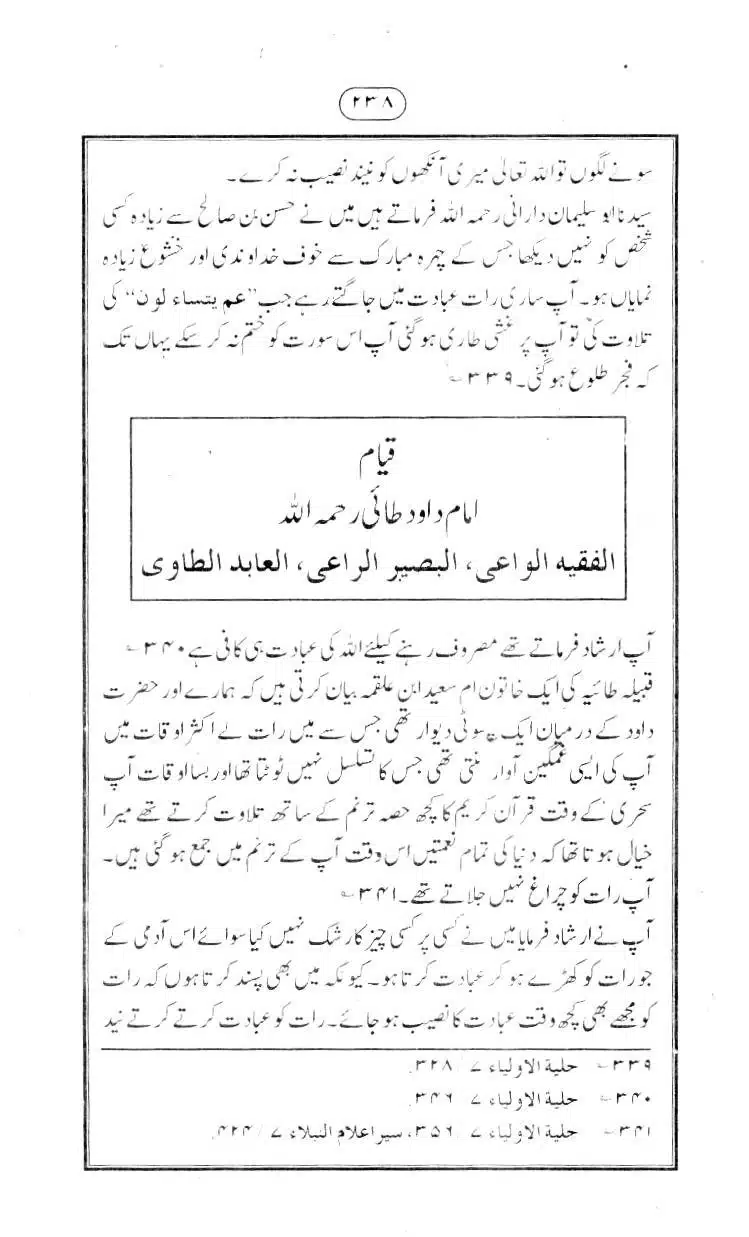 ۲۳۸
سونے لگوں تو اللہ تعالیٰ میری آنکھوں کو نیند نصیب نہ کرے۔
سیدنا ابو سلیمان دارانی رحمہ اللہ فرماتے ہیں میں نے حسن بن صالح سے زیادہ کسی
شخص کو نہیں دیکھا جس کے چہرہ مبارک سے خوف خداوندی اور خشوع زیادہ
نمایاں ہو۔ آپ ساری رات عبادت میں جاگتے رہے جب ”عم یتساء لون“ کی
تلاوت کی تو آپ پر غشی طاری ہو گئی آپ اس سورت کو ختم نہ کر سکے یہاں تک
کہ فجر طلوع ہو گئی۔ ۳۳۹؎
قیام
امام داود طائی رحمہ اللہ
الفقیہ الواعی، البصیر الراعی، العابد الطاوی
آپ ارشاد فرماتے تھے مصروف رہنے کیلئے اللہ کی عبادت ہی کافی ہے ۳۴۰؎
قبیلہ طائیہ کی ایک خاتون ام سعید ابن علقمہ بیان کرتی ہیں کہ ہمارے اور حضرت
داود کے درمیان ایک چھوٹی دیوار تھی جس سے میں رات کے اکثر اوقات میں
آپ کی ایسی غمگین آواز سنتی تھی جس کا تسلسل نہیں ٹوٹتا تھا اور بسا اوقات آپ
سحری کے وقت قرآن کریم کا کچھ حصہ ترنم کے ساتھ تلاوت کرتے تھے میرا
خیال ہوتا تھا کہ دنیا کی تمام نعمتیں اس وقت آپ کے ترنم میں جمع ہو گئی ہیں۔
آپ رات کو چراغ نہیں جلاتے تھے۔ ۳۴۱؎
آپ نے ارشاد فرمایا میں نے کسی پر کسی چیز کا رشک نہیں کیا سوائے اس آدمی کے
جو رات کو کھڑے ہو کر عبادت کرتا ہو۔ کیونکہ میں بھی پسند کرتا ہوں کہ رات
کو مجھے بھی کچھ وقت عبادت کا نصیب ہو جائے۔ رات کو عبادت کرتے کرتے نیند
۳۳۹؎ حلیة الاولیاء ۷ /۳۲۸.
۳۴۰؎ حلیة الاولیاء ۷ /۳۴۶.
۳۴۱؎ حلیة الاولیاء ۷ /۳۵۶، سیر اعلام النبلاء ۷ /۴۲۴.